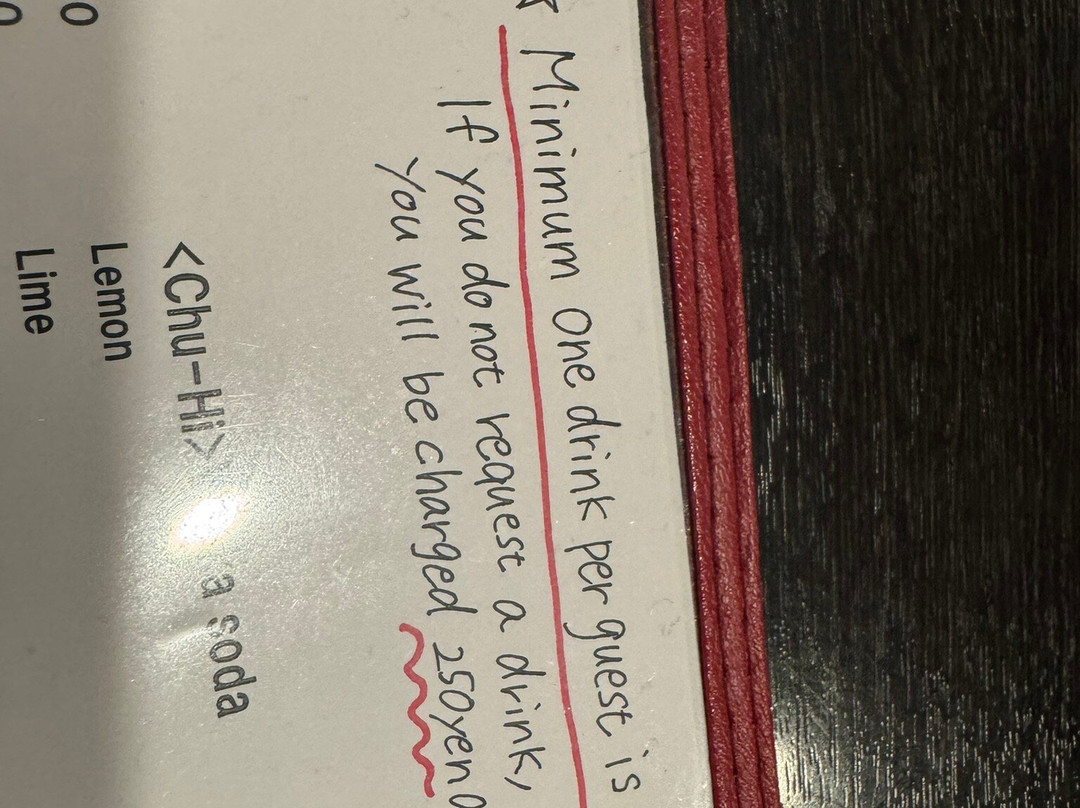 Minimum one drink per guest is
If you do not request a drink,
You will be charged 250yen
<Chu-Hi> a soda
Lemon
Lime